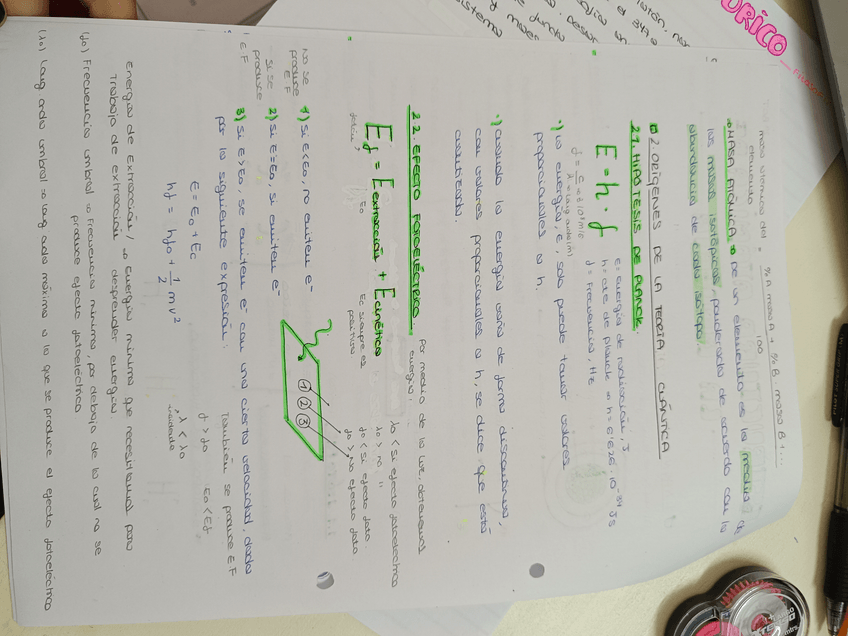 masa atómica del elemento = %A · masa A + %B · masa B + ...
100
⇒ MASA ATÓMICA ⇒ De un elemento es la media de
las masas isotópicas, ponderada de acuerdo con la
abundancia de cada isótopo.
2. ORÍGENES DE LA TEORÍA CUÁNTICA
2.1. HIPÓTESIS DE PLANCK
E = h · f
E = energía de radiación, J
h = cte de planck ⇒ h = 6'626 · 10⁻³⁴ J s
f = Frecuencia, Hz
λ = long onda (m)
·) la energía, E, solo puede tomar valores
proporcionales a h.
·) cuando la energía varía de forma discontinua,
con valores proporcionales a h, se dice que está
cuantizada.
2.2. EFECTO FOTOELÉCTRICO
Por medio de la luz, obtenemos
energía.
E f = E extracción + E cinética
E₀
Ec siempre es
positiva
λ₀ < si efecto fotoeléctrico
λ₀ > no "
f₀ < si efecto foto.
f₀ > No efecto foto
No se
produce
E F
1) Si E < E₀, no emiten e⁻
si se
produce
E F
2) Si E = E₀, si emiten e⁻
1 2 3
3) Si E > E₀, se emiten e⁻ con una cierta velocidad dada
por la siguiente expresión:
También se produce E F
E = E₀ + Ec
f > f₀
E₀ < Ef
hf = hf₀ + 1/2 m v²
λ < λ₀
Energía de Extracción / ⇒ Energía mínima que necesitamos para
Trabajo de extracción
desprender energía
(f₀) Frecuencia umbral ⇒ Frecuencia mínima, por debajo de la cual no se
produce efecto fotoeléctrico
(λ₀) Long onda umbral ⇒ long onda máxima a la que se produce el efecto fotoeléctrico
ÚRICO
sistema